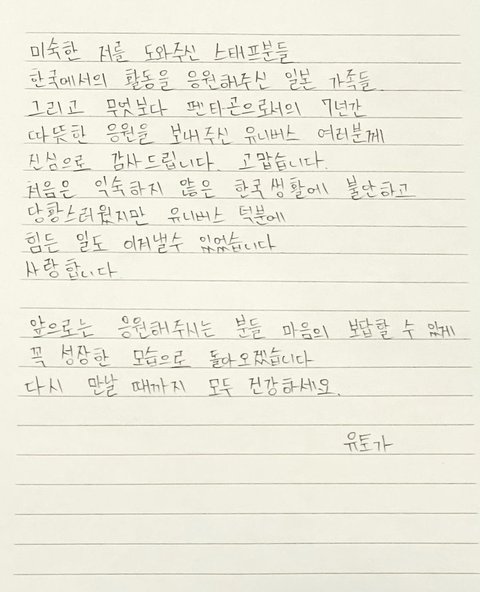 미숙한 저를 도와주신 스태프분들
한국에서의 활동을 응원해주신 일본 가족들.
그리고 무엇보다 펜타곤으로서의 7년간
따뜻한 응원을 보내주신 유니버스 여러분께
진심으로 감사드립니다. 고맙습니다.
처음은 익숙하지 않은 한국생활에 불안하고
당황스러웠지만 유니버스 덕분에
힘든 일도 이겨낼수 있었습니다
사랑합니다
앞으로는 응원해주시는 분들 마음의 보답할 수 있게
꼭 성장한 모습으로 돌아오겠습니다
다시 만날 때까지 모두 건강하세요.
유토가